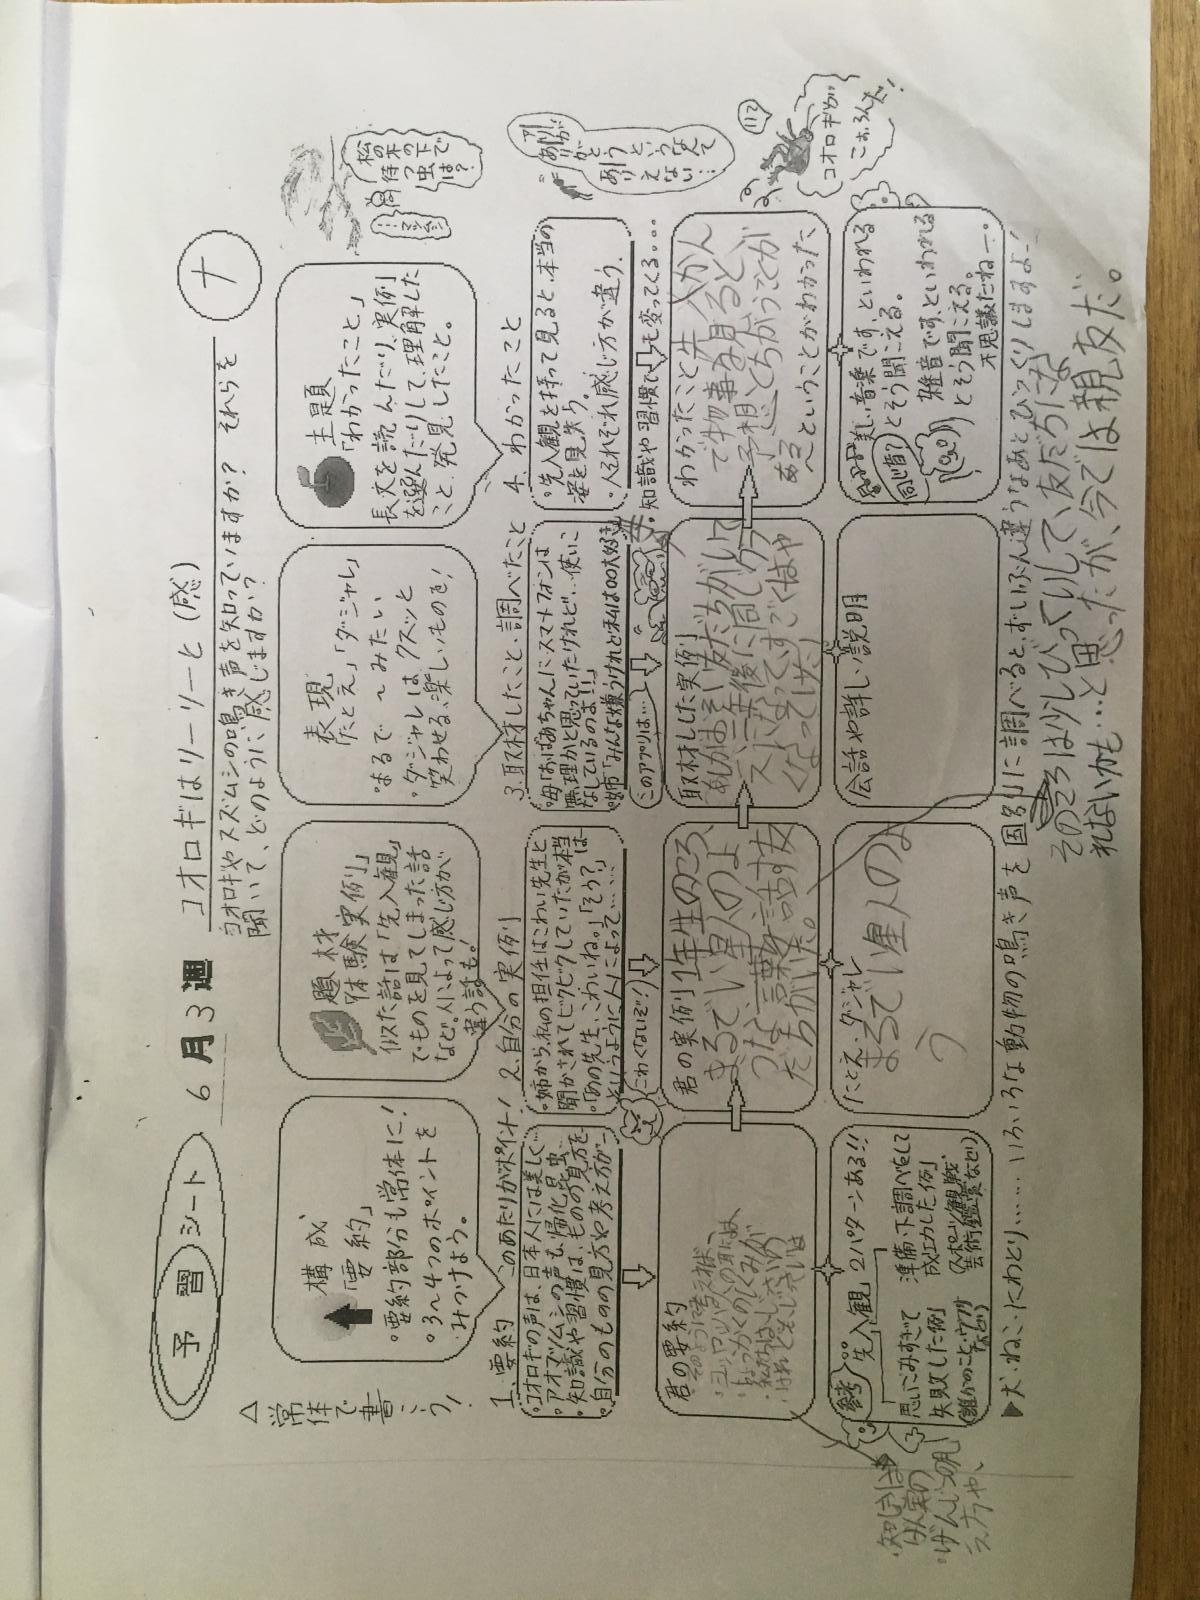 予習シート
6月3週
コオロギはリーリーと (感)
ナ
コオロギやスズムシの鳴き声を知っていますか? それらを
聞いて、どのように感じますか?
△常体で書こう!
構成
「要約」
・要約部分も常体に!
・3〜4つのポイントを
みつけよう。
題材
「体験実例」
似た話は「先入観」
でものを見てしまった話
など。人によって感じ方が
違う話も!
表現
「たとえ」「ダジャレ」
・まるで〜みたい
・ダジャレは、クスッと
笑わせる、楽しいものを!
主題
「わかったこと」
長文を読んだり、実例
を選んだりして、理解した
こと、発見したこと。
松の木の下で
待つ虫
では?
1. 要約 このあたりがポイント!
・コオロギの声は、日本人には美しく…
・アオマツムシの声も、帰化昆虫…
・知識や習慣は、ものの見方を…
・自分のものの見方や考え方が…
2. 自分の実例
・姉から、私の担任はこわい先生と
聞かされてビクビクしていたが本当
・「あの先生、こわいね。」「そう?」
というように人によって……
こわくないぞ!?
3. 取材したこと・調べたこと
・母「おばあちゃんにスマートフォンは
無理かと思っていたけれど…使いこ
なしているのよ!!」
・姉「みんな嫌うけれど私は〇〇大好き
このアプリは…
4. わかったこと
・先入観を持って見ると、本当の
姿を見失う。
・人それぞれ感じ方が違う。
・知識や習慣でも変ってくる…。
ありがとう
というなんて
ありえない…
君の要約
・そのように考えれば、
・ヨーロッパ人の耳には、
君の実例 1年生のころ
まるでい星人のよ
うな言葉を話す友
だちがいた。
取材した実例
三年後に同じクラ
スになってすごくはや
くなってました!
わかったこと 先入かん
で物事を見ると
予想とちがうことが
ある
ということがわかった
コオロギが
こおろんだ!
参考 先入観 2パターンある!!
思いこみすぎて
失敗した例
(誰かのこと・ウワサ
など)
準備・下調べをして
成功した例
(スポーツ観戦、
芸術鑑賞など)
たとえ・ダジャレ
まるでい星人のよ
う
会話や詳しい説明
美しい音楽です、といわれる
とそう聞こえる。
同じ音?
雑音です、といわれる
とそう聞こえる。
不思議だねー。
▶犬・ねこ・にわとり……いろいろな動物の鳴き声を国別に調べると、ずいぶん違うなあとびっくりしますよ!
そのころは少しびっくりして友だちにな
れないかも…と思ったが、今では親友だ。